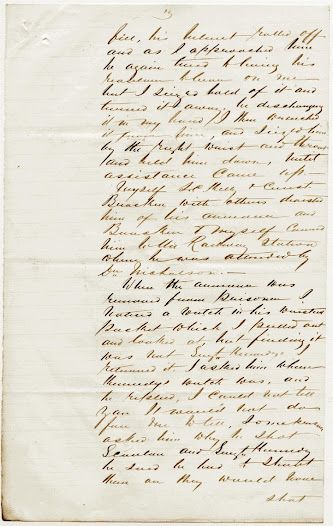 3
fell, his helmet rolled off
and as I approached him
he again tried to bring his
revolver to bear on me
but I seized hold of it and
turned it away, he discharging
it in my hand, I then wrenched
it from him, and seized him
by the right wrist and throat
and held him down, until
assistance came up
Myself S.C. Kelly & Const
Bracken with others divested
him of his armour and
Bracken & myself carried
him to the Railway Station
where he was attended by
Dr Nicholson
When the armour was
removed from Prisoner I
noticed a watch in his waistcoat
Pocket which I pulled out
and looked at but finding it
was not Sergt Kennedy's I
returned it I asked him where
Kennedy's watch was, and
he replied, I cannot tell
you It would not do
for me to tell, I
asked him why he shot
Scanlan and Sergt Kennedy
he said he had to shoot
them or they would have
shot